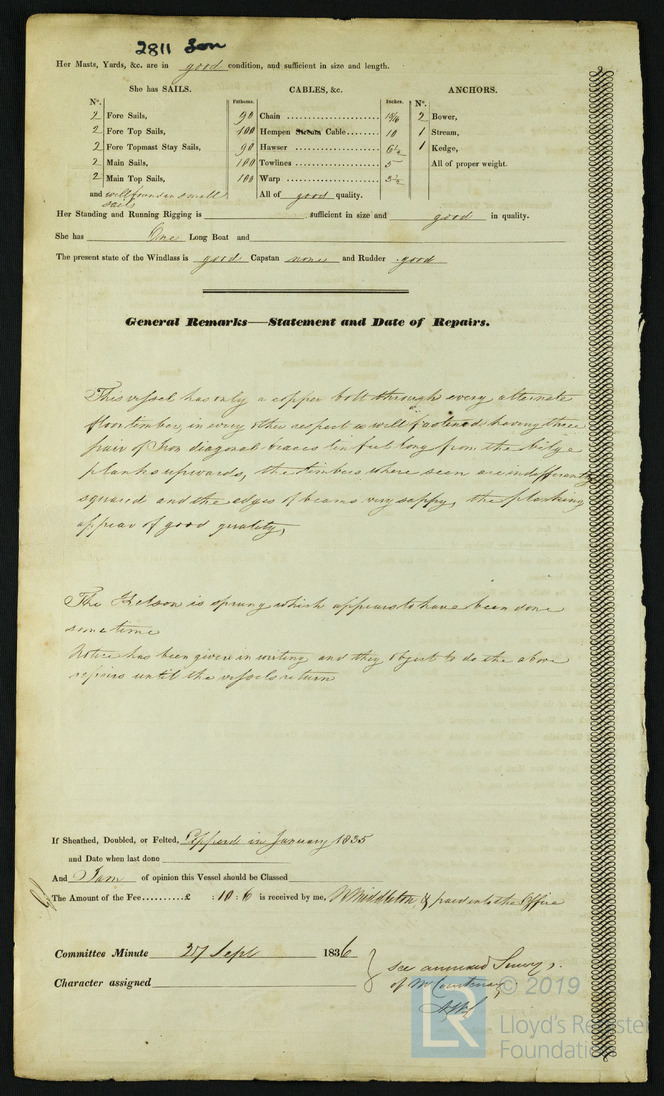 2811 Lon
Her Masts, Yards, &c. are in good condition, and sufficient in size and length.
She has SAILS. CABLES, &c. ANCHORS.
N°. Fathoms. Inches. N°.
2 Fore Sails, 90 Chain 2 Bower,
2 Fore Top Sails, 100 Hempen Stream Cable 10 1 Stream,
2 Fore Topmast Stay Sails, 90 Hawser 6½ 1 Kedge,
2 Main Sails, 100 Towlines 5 All of proper weight.
2 Main Top Sails, 100 Warp 3½
and well found in small All of good quality.
sails
Her Standing and Running Rigging is sufficient in size and good in quality.
She has One Long Boat and
The present state of the Windlass is good Capstan none and Rudder good
General Remarks—Statement and Date of Repairs.
This vessel has only a copper bolt through every alternate
floor timber, in every other respect is well fastened having three
pair of Iron diagonal braces ten feet long from the bilge
planks upwards, the timbers where seen are indifferently
squared and the edges of beams very sappy, the planking
appear of good quality,
The Kelson is sprung which appears to have been done
sometime
Notice has been given in writing and they object to do the above
repairs until the vessels return
If Sheathed, Doubled, or Felted, Coppered in January 1835
and Date when last done
And I am of opinion this Vessel should be Classed
The Amount of the Fee £ : 10 : 6 is received by me, W Middleton & paid into the Office
Committee Minute 27 Sept 1836
see annexed Survey
Character assigned
of Mr Courtenay
© 2019
LR
Lloyd's Register
Foundation